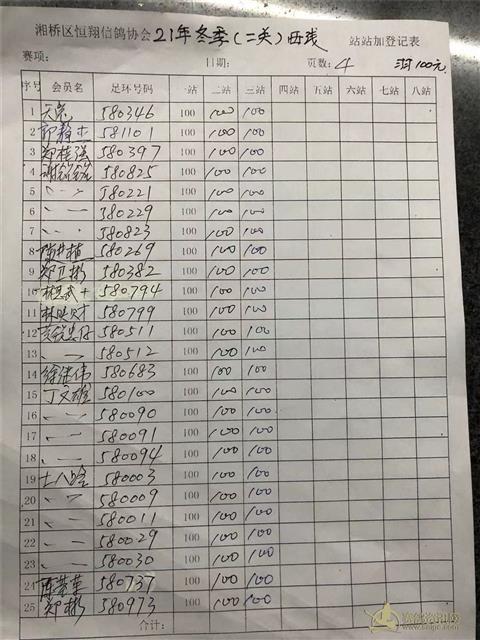 湘桥区恒翔信鸽协会21年冬季(二关)西线 站站加登记表
赛项: 日期: 页数: 4 满100元
序号 会员名 足环号码 一站 二站 三站 四站 五站 六站 七站 八站
1 580346 100 100 100
2 581101 100 100 100
3 郑桂强 580397 100 100 100
4 580825 100 100 100
5 〃 580221 100 100 100
6 〃 580229 100 100 100
7 〃 580823 100 100 100
8 580269 100 100 100
9 郑卫彬 580382 100 100 100
10 580794 100 100 100
11 林映财 580799 100 100 100
12 580511 100 100 100
13 〃 580512 100 100 100
14 徐继伟 580683 100 100 100
15 丁文雄 580100 100 100 100
16 〃 580090 100 100 100
17 〃 580091 100 100 100
18 〃 580094 100 100 100
19 580003 100 100 100
20 〃 580009 100 100 100
21 〃 580011 100 100 100
22 〃 580029 100 100 100
23 〃 580030 100 100 100
24 580737 100 100 100
25 郑彬 580973 100 100 100
合计: